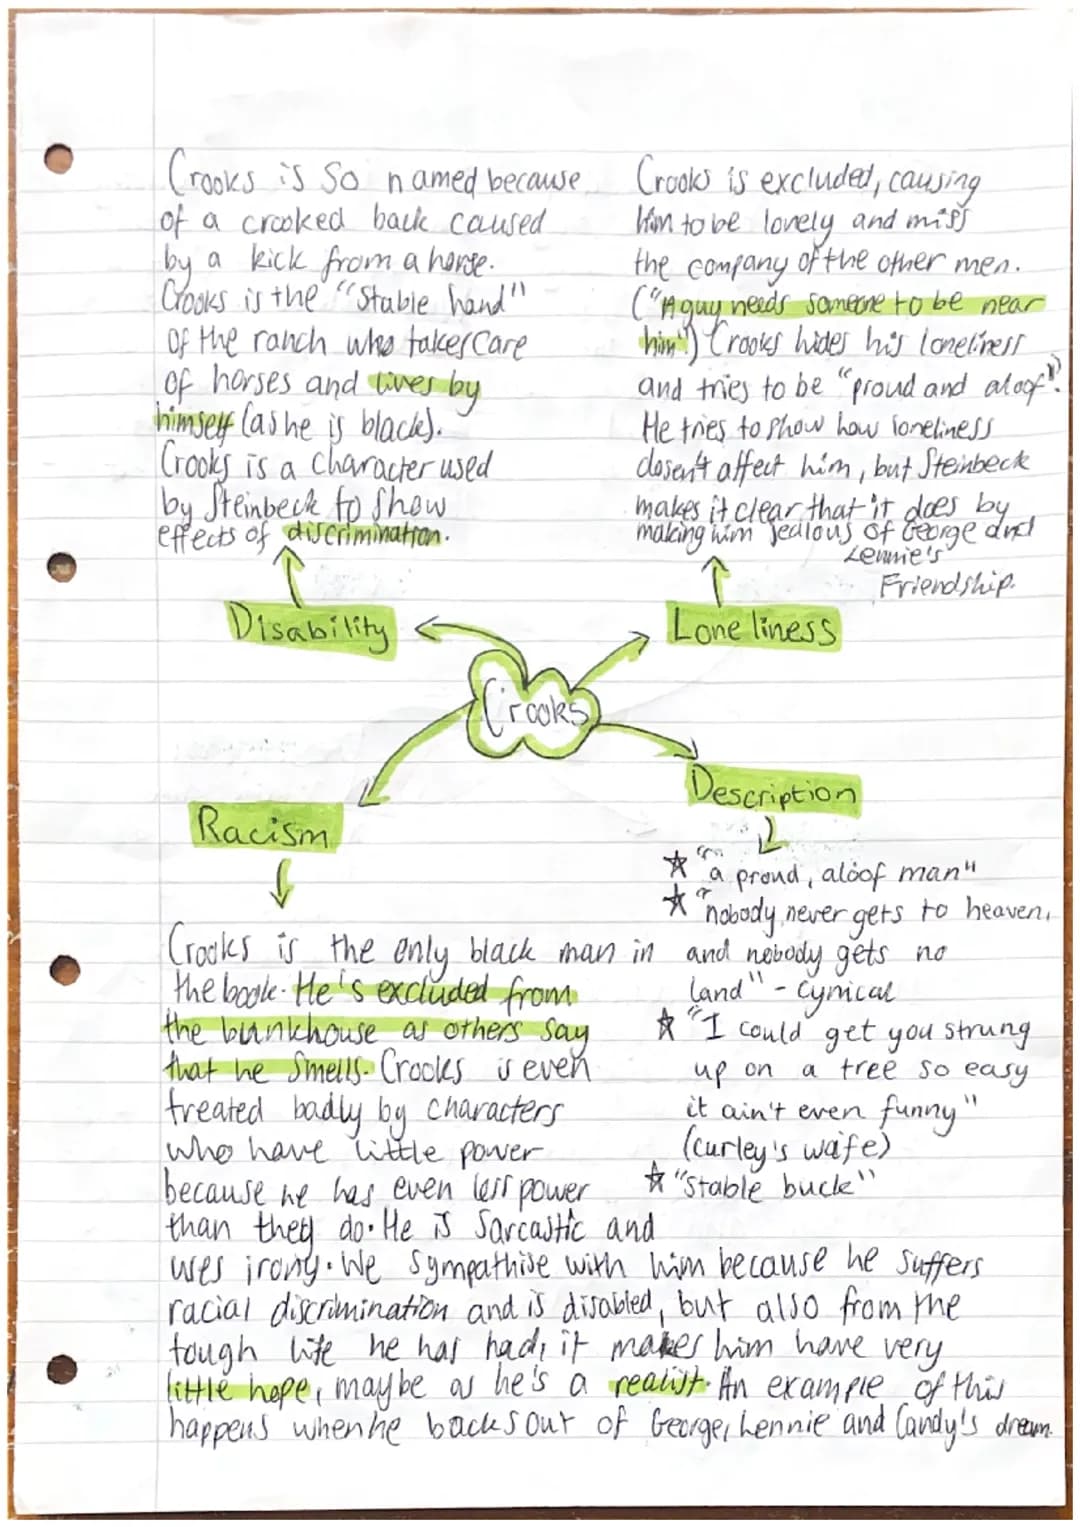 Crooks is so named because
of a crooked back caused
by a kick from a horse.
Crooks is the "Stable hand"
of the ranch who takes care
of horses and lives by
himself (as he is black).
Crooks is a character used
by Steinbeck to show
effects of discrimination.
Crooks is excluded, causing
him to be lovely and miss
the company of the other men.
("A guy needs someone to be near
him") Crooks hides his loneliness
and tries to be "proud and aloof".
He tries to show how loneliness
dosen't affect him, but Steinbeck
makes it clear that it does by
making him jealous of George and
Lennie's
Friendship.
Disability
Loneliness
Crooks
Racism
Description
Crooks is the only black man in
the book. He's excluded from
the bunkhouse as others say
that he smells. Crooks is even
treated badly by characters
who have little power
because he has even less power
than they do. He is sarcastic and
uses irony. We sympathise with him because he suffers
racial discrimination and is disabled, but also from the
tough life he has had, it makes him have very
little hope, maybe as he's a realist. An example of this
happens when he backs out of George, Lennie and Candy's dream.
☆ "a proud, aloof man"
☆ "nobody never gets to heaven,
and nobody gets no
land" - Cynical
☆ "I could get you strung
up on a tree so easy
it ain't even funny"
(Curley's waife)
☆ "Stable buck"